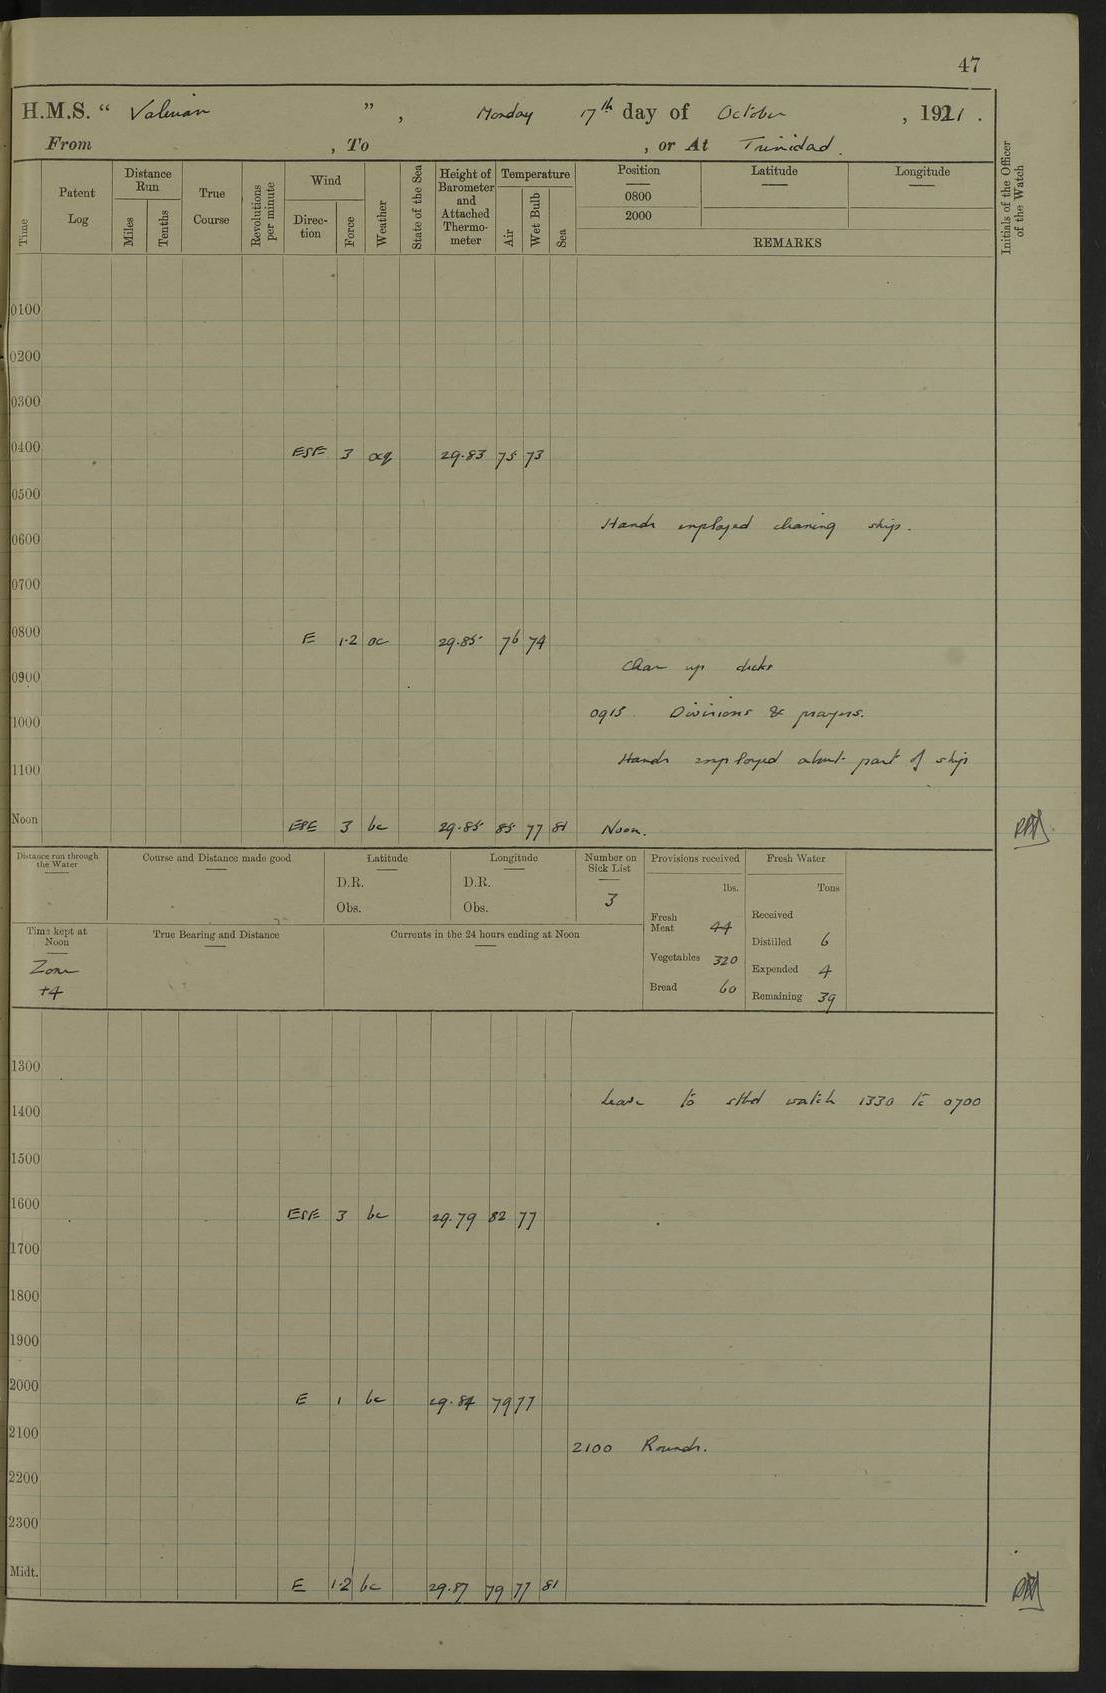 47
H.M.S. “ Valerian ” , Monday 17th day of October , 1921 .
From , To , or At Trinidad .
Time Patent Log Distance Run Miles Tenths True Course Revolutions per minute Wind Direction Force Weather State of the Sea Height of Barometer and Attached Thermometer Temperature Air Wet Bulb Sea Position 0800 2000 Latitude Longitude Initials of the Officer of the Watch
REMARKS
0100
0200
0300
0400 ESE 3 ocq 29.83 75 73
0500
Hands employed cleaning ship.
0600
0700
0800 E 1.2 oc 29.85 76 74
Clear up decks
0900
0915 Divisions & prayers.
1000
Hands employed about part of ship
1100
Noon ESE 3 bc 29.85 85 77 81 Noon.
Distance run through the Water Course and Distance made good Latitude Longitude Number on Sick List Provisions received Fresh Water
D.R. D.R. lbs. Tons
Obs. Obs. 3
Fresh Meat 44 Received
Time kept at Noon True Bearing and Distance Currents in the 24 hours ending at Noon Distilled 6
Zone +4 Vegetables 320 Expended 4
Bread 60 Remaining 39
1300
Leave to stbd watch 1330 to 0700
1400
1500
1600 ESE 3 bc 29.79 82 77
1700
1800
1900
2000 E 1 bc 29.84 79 77
2100
2100 Rounds.
2200
2300
Midt. E 1.2 bc 29.87 79 77 81